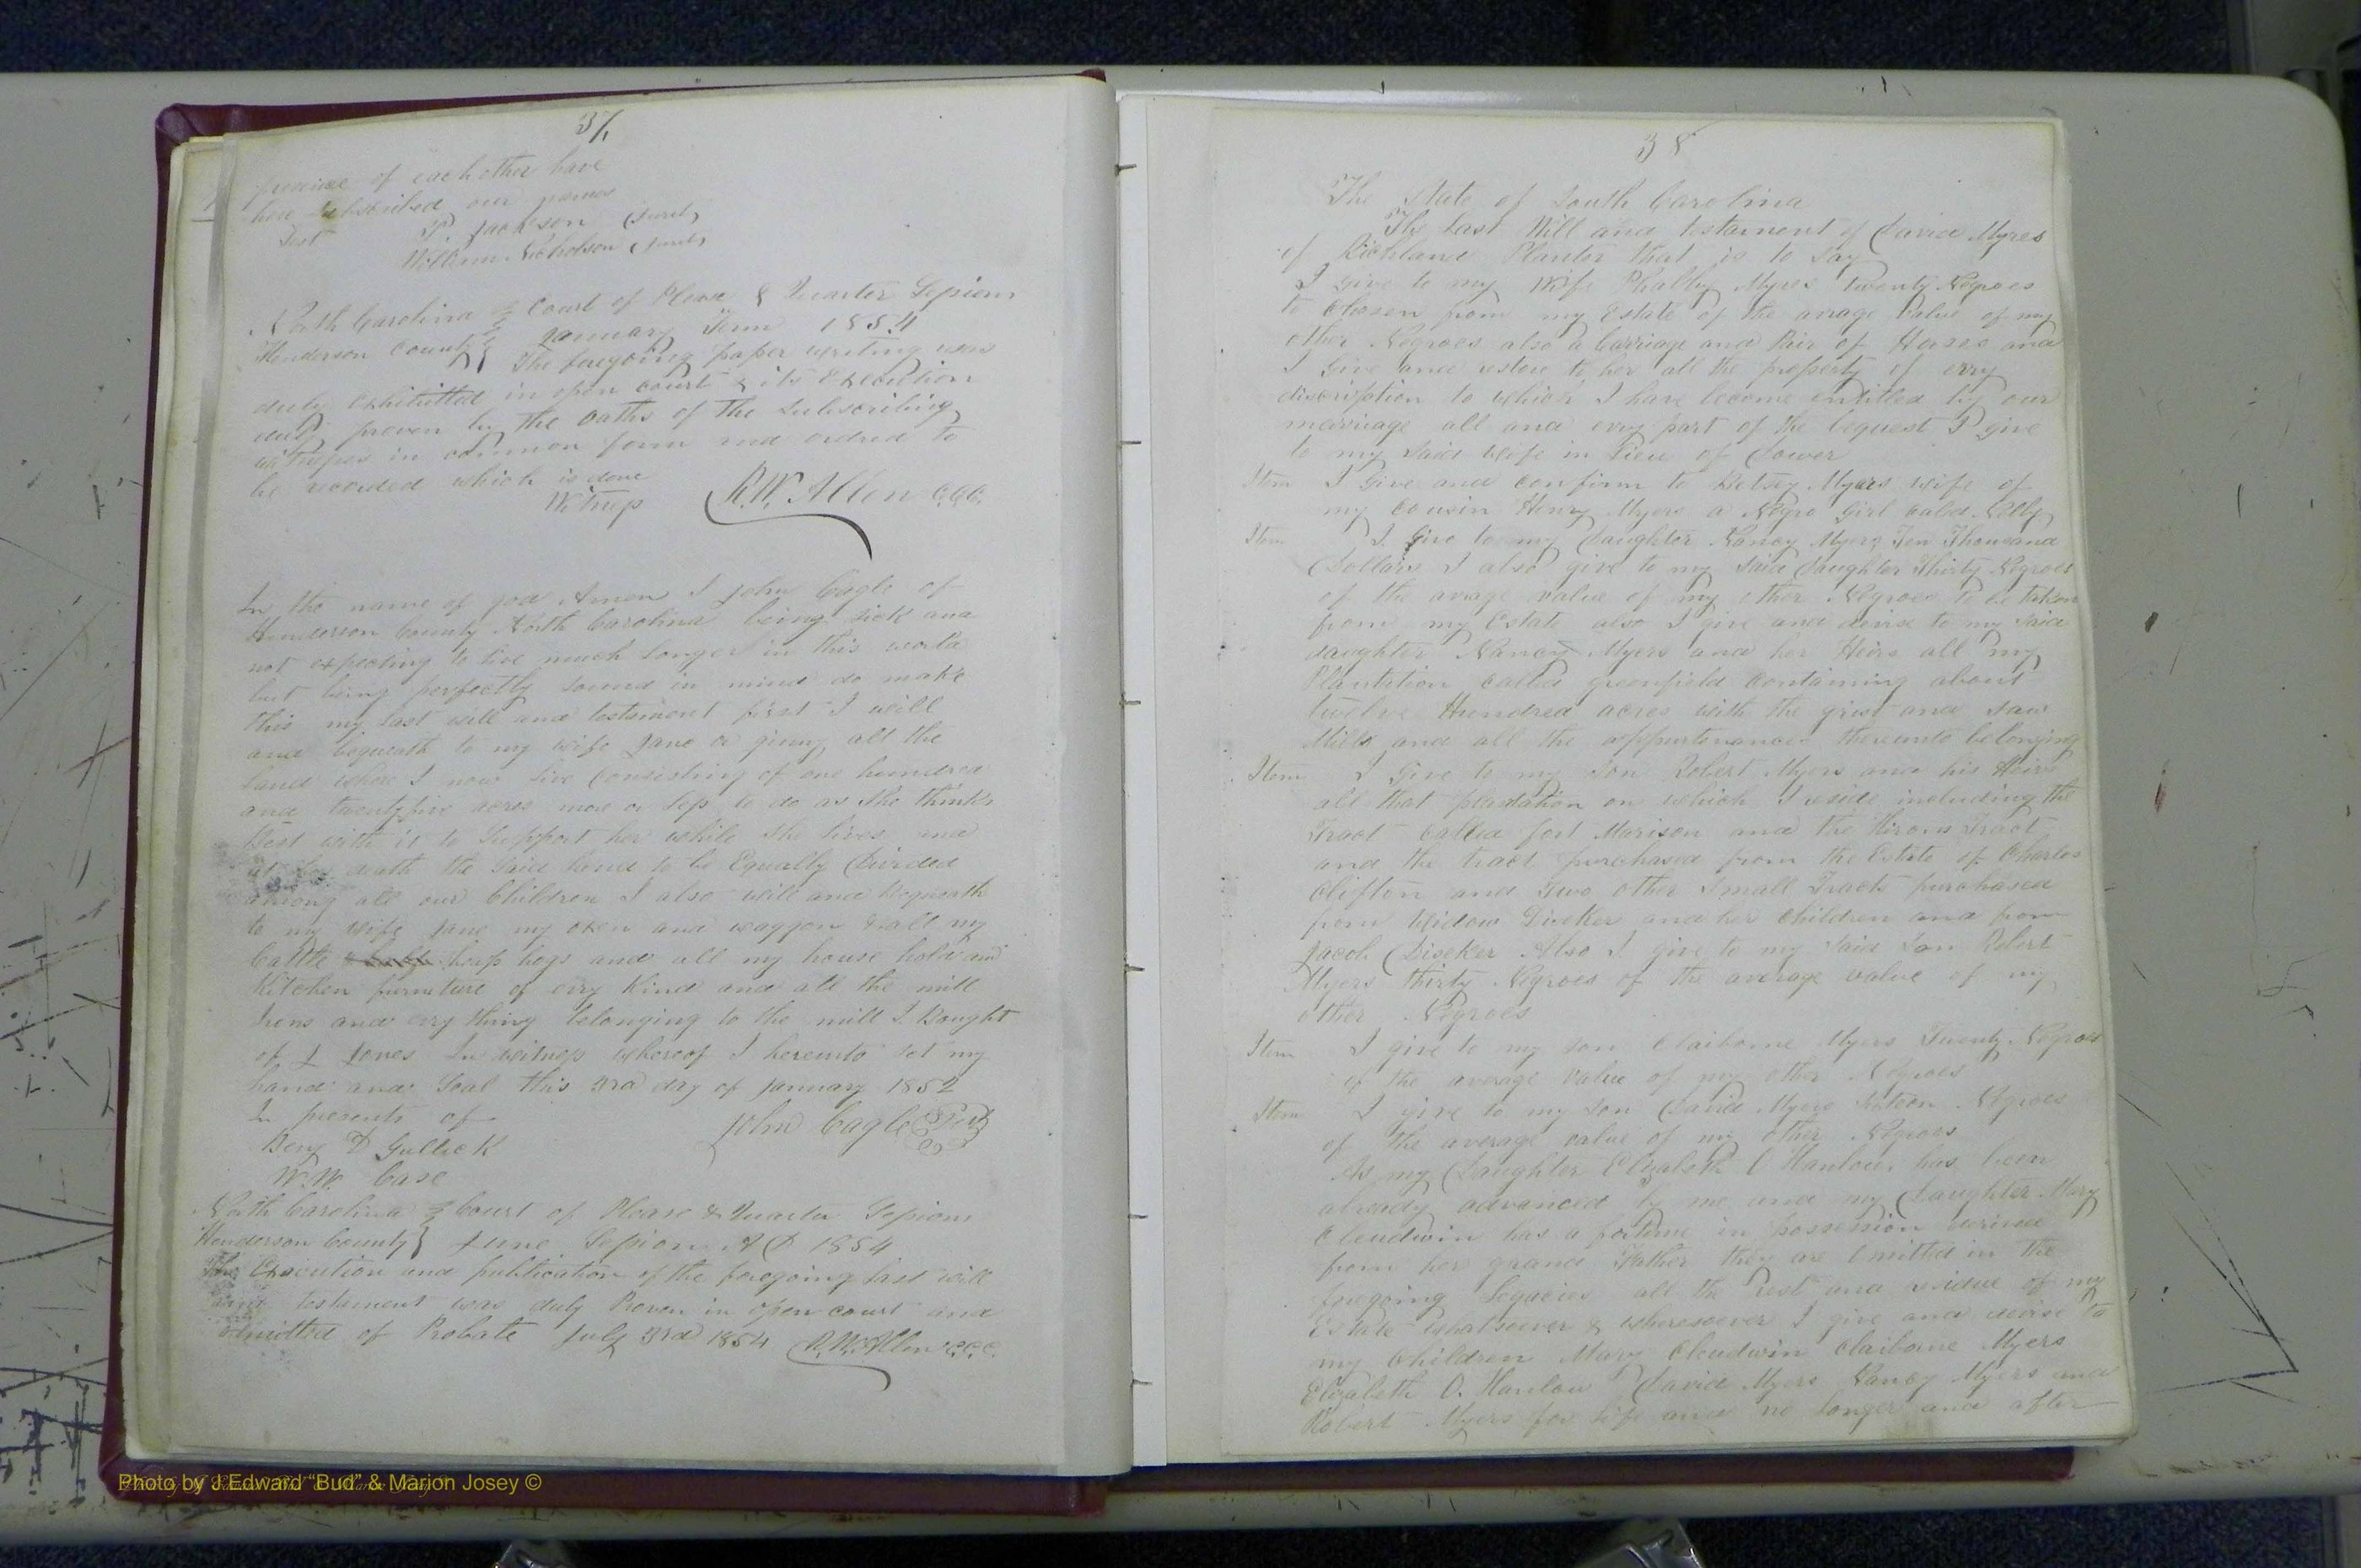 37
presence of each other have
here subscribed our names
Test P. Jackson (Jurat)
William Nicholson (Jurat)
North Carolina Court of Pleas & Quarter Sessions
Henderson County January Term 1854
The foregoing paper writing was
duly exhibitted in open court & its Execution
duly proven by the oaths of the subscribing
witnesses in common form and ordred to
be recorded which is done
Witness R.W. Allen C.C.C.
In the name of god Amen I John Cagle of
Henderson County North Carolina being sick and
not expecting to live much longer in this world
but being perfectly sound in mind do make
this my last will and testament first I will
and bequeath to my wife Jane or ginny all the
land where I now live Consisting of one hundred
and twentyfive acres more or less to do as she thinks
Best with it to Support her while she lives and
at her death the Said land to be Equally Divided
among all our Children I also will and Bequeath
to my wife Jane my oxen and waggon & all my
Cattle hogs and all my house hold and
Kitchen furniture of evry Kind and all the mill
Irons and evry thing belonging to the mill I Bought
of J Jones In witness whereof I hereunto set my
hand and Seal this 3rd day of January 1852
In presents of John Cagle
Benj D Gullick
W.W. Case
North Carolina Court of Please & Quarter Sessions
Henderson County June Session AD 1854
The Execution and publication of the foregoing last will
and testament was duly Proven in open court and
admitted of Probate July 3rd 1854 R.W. Allen C.C.C.
38
The State of South Carolina
The Last Will and testament of David Myres
of Richland Planter that is to Say
I give to my Wife Phalby Myres Twenty Negroes
to Chosen from my Estate of the avrage Value of my
other Negroes also a Carriage and Pair of Horses and
I Give and restore to her all the property of evry
discription to which I have become entitled by our
marriage all and evry part of the bequest I give
to my Said wife in Lieu of Dower
Item I Give and confirm to Betsey Myers wife of
my cousin Henry Myers a Negro Girl called Nelly
Item I Give to my Daughter Nancy Myers Ten Thousand
Dollars I also give to my Said Daughter Thirty Negroes
of the avrage value of my other Negroes to be taken
from my Estate also I give and devise to my Said
daughter Nancy Myers and her Heirs all my
Plantation called greenfield Containing about
twelve Hundred acres with the grist and Saw
Mills and all the appurtenances thereunto belonging
Item I Give to my Son Robert Myers and his Heirs
all that plantation on which I reside including the
Tract Called fort Marison and the Hirons Tract
and the tract purchased from the Estate of Charles
Clifton and Two other Small Tracts purchased
from Widow and her Children and from
Jacob Diseker Also I give to my Said Son Robert
Myers thirty Negroes of the average value of my
other Negroes
Item I give to my Son Claiborne Myers Twenty Negroes
of the average Value of my other Negroes
Item I give to my Son David Myers Negroes
of the average value of my other Negroes
As my Daughter Elizabeth O Hanlow has been
already advanced by me and my Daughter Mary
Cleudwin has a fortune in possession derived
from her grand Father they are Omitted in the
foregoing Legacies all the Rest and residue of my
Estate whatsoever & wheresoever I give and devise to
my Children Mary Cleudwin Claiborne Myers
Elizabeth O. Hanlow David Myers Nancy Myers and
Robert Myers for life and no longer and after
Photo by J Edward "Bud" & Marion Josey ©